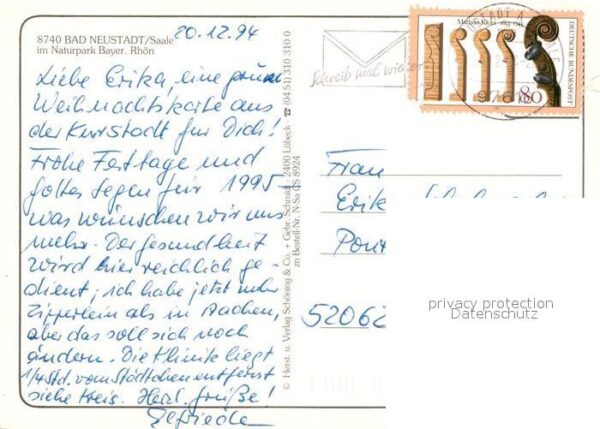 8740 BAD NEUSTADT/Saale
im Naturpark Bayer. Rhön
20.12.94
Liebe Erika, eine grüne
Weihnachtskarte aus
der Kurstadt für Dich!
Frohe Festtage und
Gottes Segen für 1995 -
was wünschen wir uns
mehr. Der Gesundheit
wird hier reichlich ge-
dient; ich habe jetzt mehr
Zipperlein als in Aachen,
aber das soll sich noch
ändern. Die Klinik liegt
1/4 Std. vom Städtchen entfernt
siehe Kreis. Herzl. Grüße!
Elfriede
© Herst. u. Verlag Schöning & Co. + Gebr. Schmidt · 2400 Lübeck ☎ (04 51) 310 310 0
zu Bestell-Nr. N Sa 08 8924
Schreib mal wieder
DEUTSCHE BUNDESPOST
80
9761
Frau
Erika
52062
privacy protection
Datenschutz